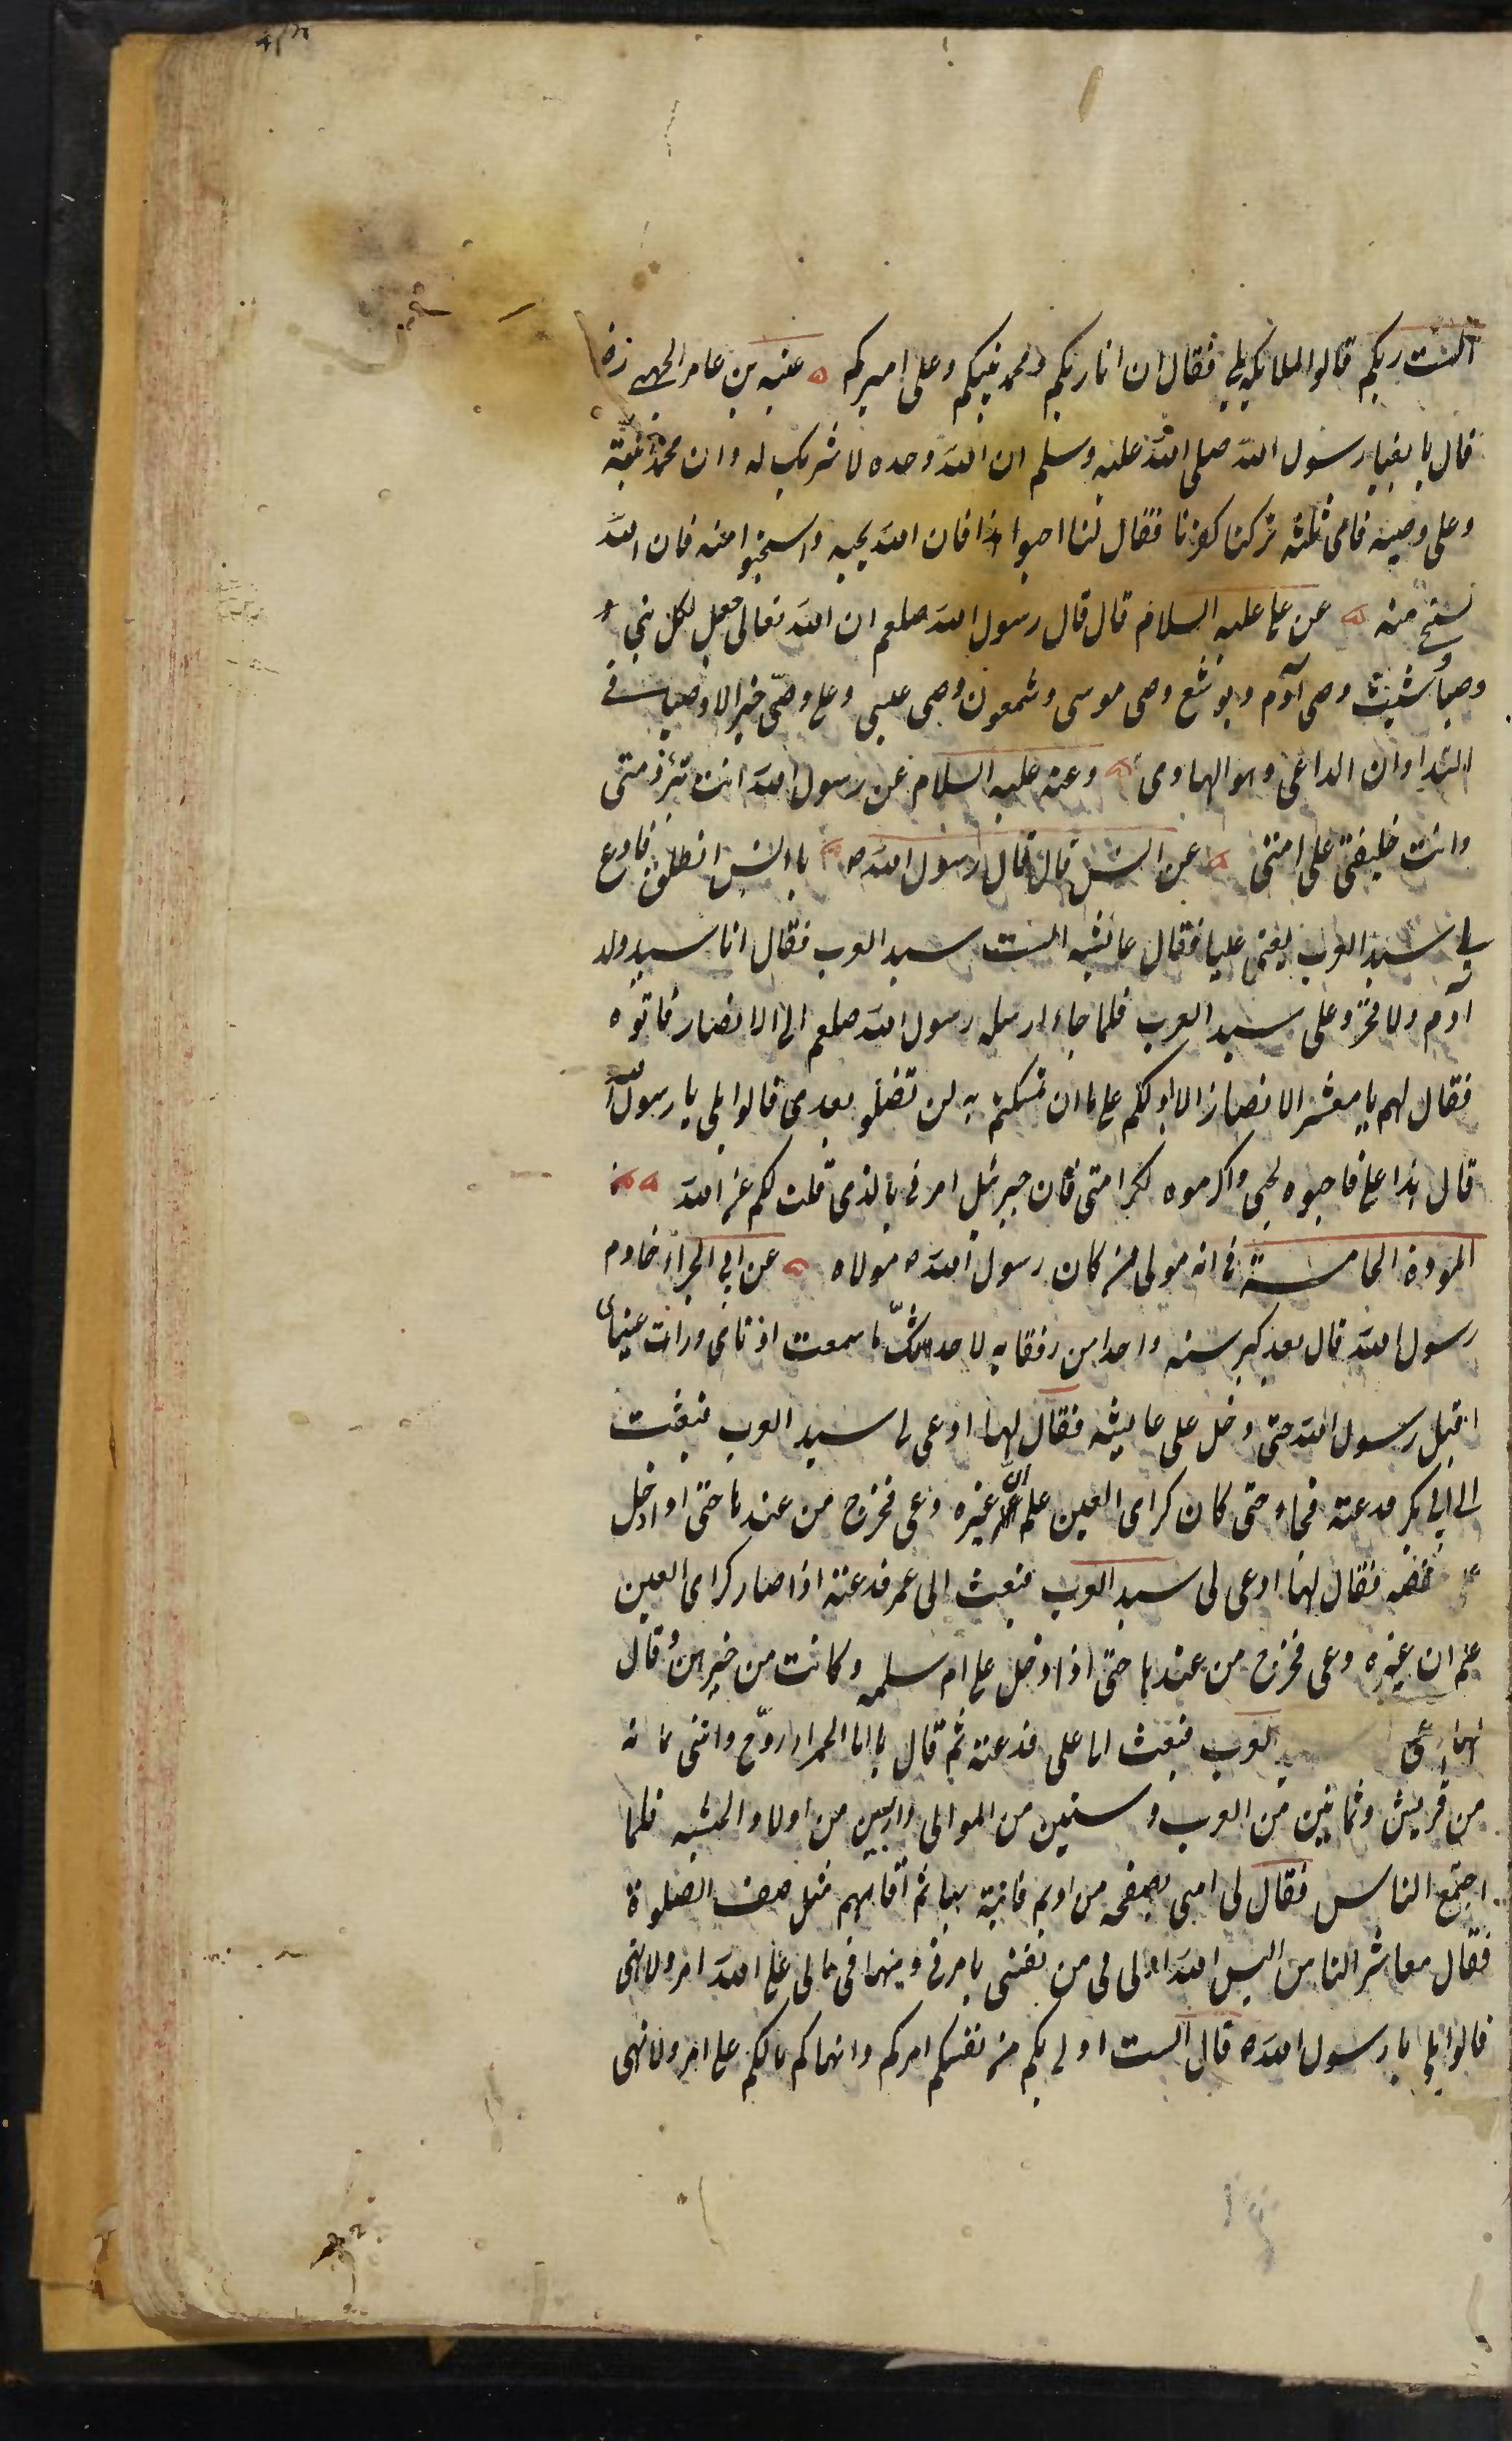 الست بربكم قالوا الملايكه بلى فقال ان انا ربكم ومحمد نبيكم وعلى اميركم ه عتبه بن عامر الجهنى رض
قال بايعنا رسول الله صلى الله عليه وسلم ان الله وحده لا شريك له وان محمدا نبيه
وعلى وصيه فاى ثلثه تركنا كفرنا فقال لنا احبوا هذا فان الله يحبه واستحيوا منه فان الله
يستحى منه ه عن على عليه السلام قال قال رسول الله صلعم ان الله تعالى جعل لكل نبى
وصيا شيث وصى آدم ويوشع وصى موسى وشمعون وصى عيسى وعلى وصيى خير الاوصيا فى
البدا وان الداعى وهو الهادى ه وعنه عليه السلام عن رسول الله انت تبرء ذمتى
وانت خليفتى على امتى ه عن انس قال قال رسول الله ص يا انس انطلق فادع
لى سيد العرب يعنى عليا فقال عائشه الست سيد العرب فقال انا سيد ولد
آدم ولا فخر وعلى سيد العرب فلما جاء ارسله رسول الله صلعم الى الانصار فاتوه
فقال لهم يا معشر الانصار الا ادلكم على ما ان تمسكتم به لن تضلو بعدى قالوا بلى يا رسول الله
قال هذا على فاحبوه لحبى واكرموه لكرامتى فان جبرئل امرنى بالذى قلت لكم عن الله ه
المودة الخامسة فى انه مولى من كان رسول الله ص مولاه ه عن ابى الحمراء خادم
رسول الله قال بعد كبر سنه واحدا من رفقايه لاحدثنك ما سمعت اذناى ورات عيناى
اقبل رسول الله حتى دخل على عايشه فقال لها ادعى لى سيد العرب فبعثت
الى ابى بكر فدعته فجاء حتى كان كراى العين علم ان غيره دعى فخرج من عندها حتى اذا دخل
على حفصه فقال لها ادعى لى سيد العرب فبعث الى عمر فدعته اذا صار كراى العين
علم ان غيره دعى فخرج من عندها حتى اذا دخل على ام سلمه وكانت من خيرهن وقال
لها ادعى العرب فبعث الى على فدعته ثم قال يا ابا الحمراء روح واتنى بمائه
من قريش وثمانين من العرب وستين من الموالى واربعين من اولاد الحبشه فلما
اجتمع الناس فقال لى ايتنى بصحفه من اديم فاتيته بها ثم اقامهم مثل صف الصلوة
فقال معاشر الناس اليس الله اولى لى من نفسى يامرنى وينهانى مالى على الله امر ولا نهى
قالوا بلى يا رسول الله ص قال الست اولى بكم من نفسكم امركم وانهاكم مالكم على امر ولا نهى